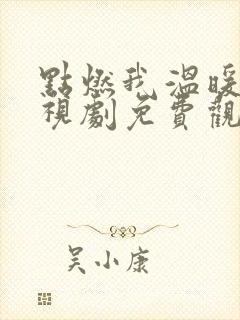 點燃我溫暖
視劇免費觀
吳小康